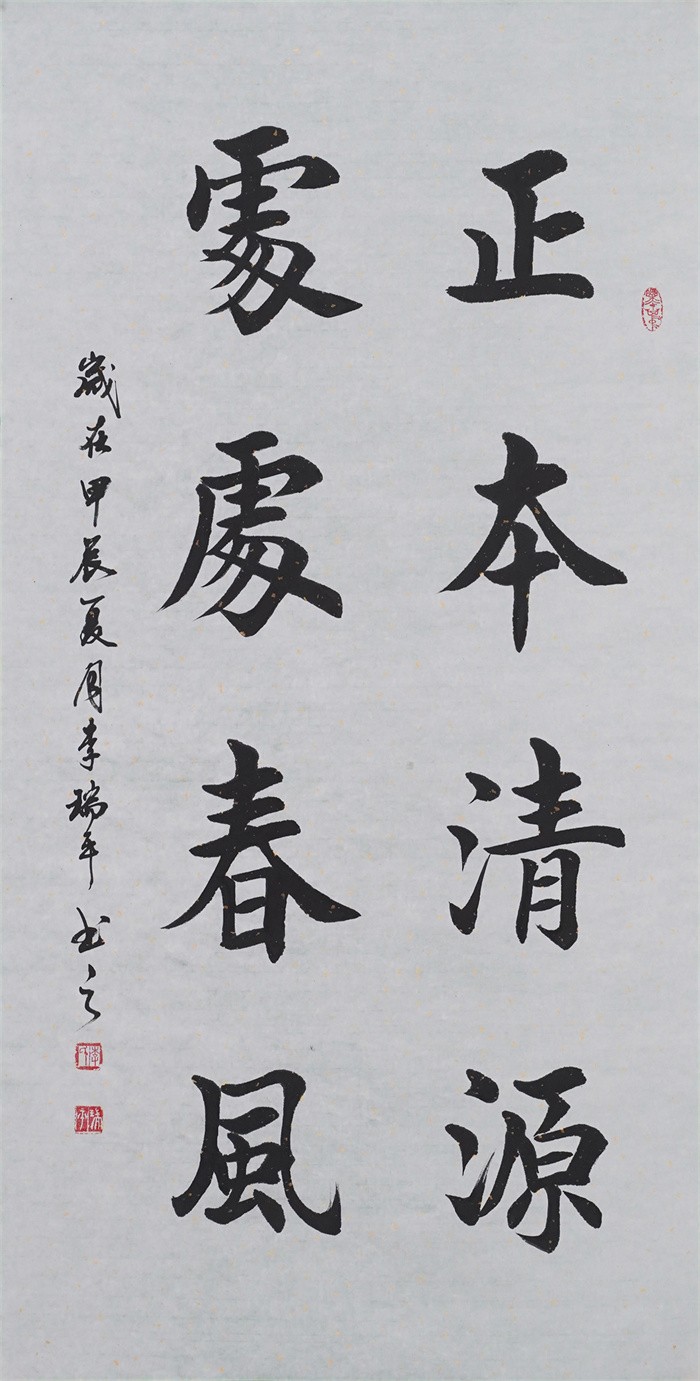 正本清源
處處春風
歲在甲辰夏月李瑞平書之